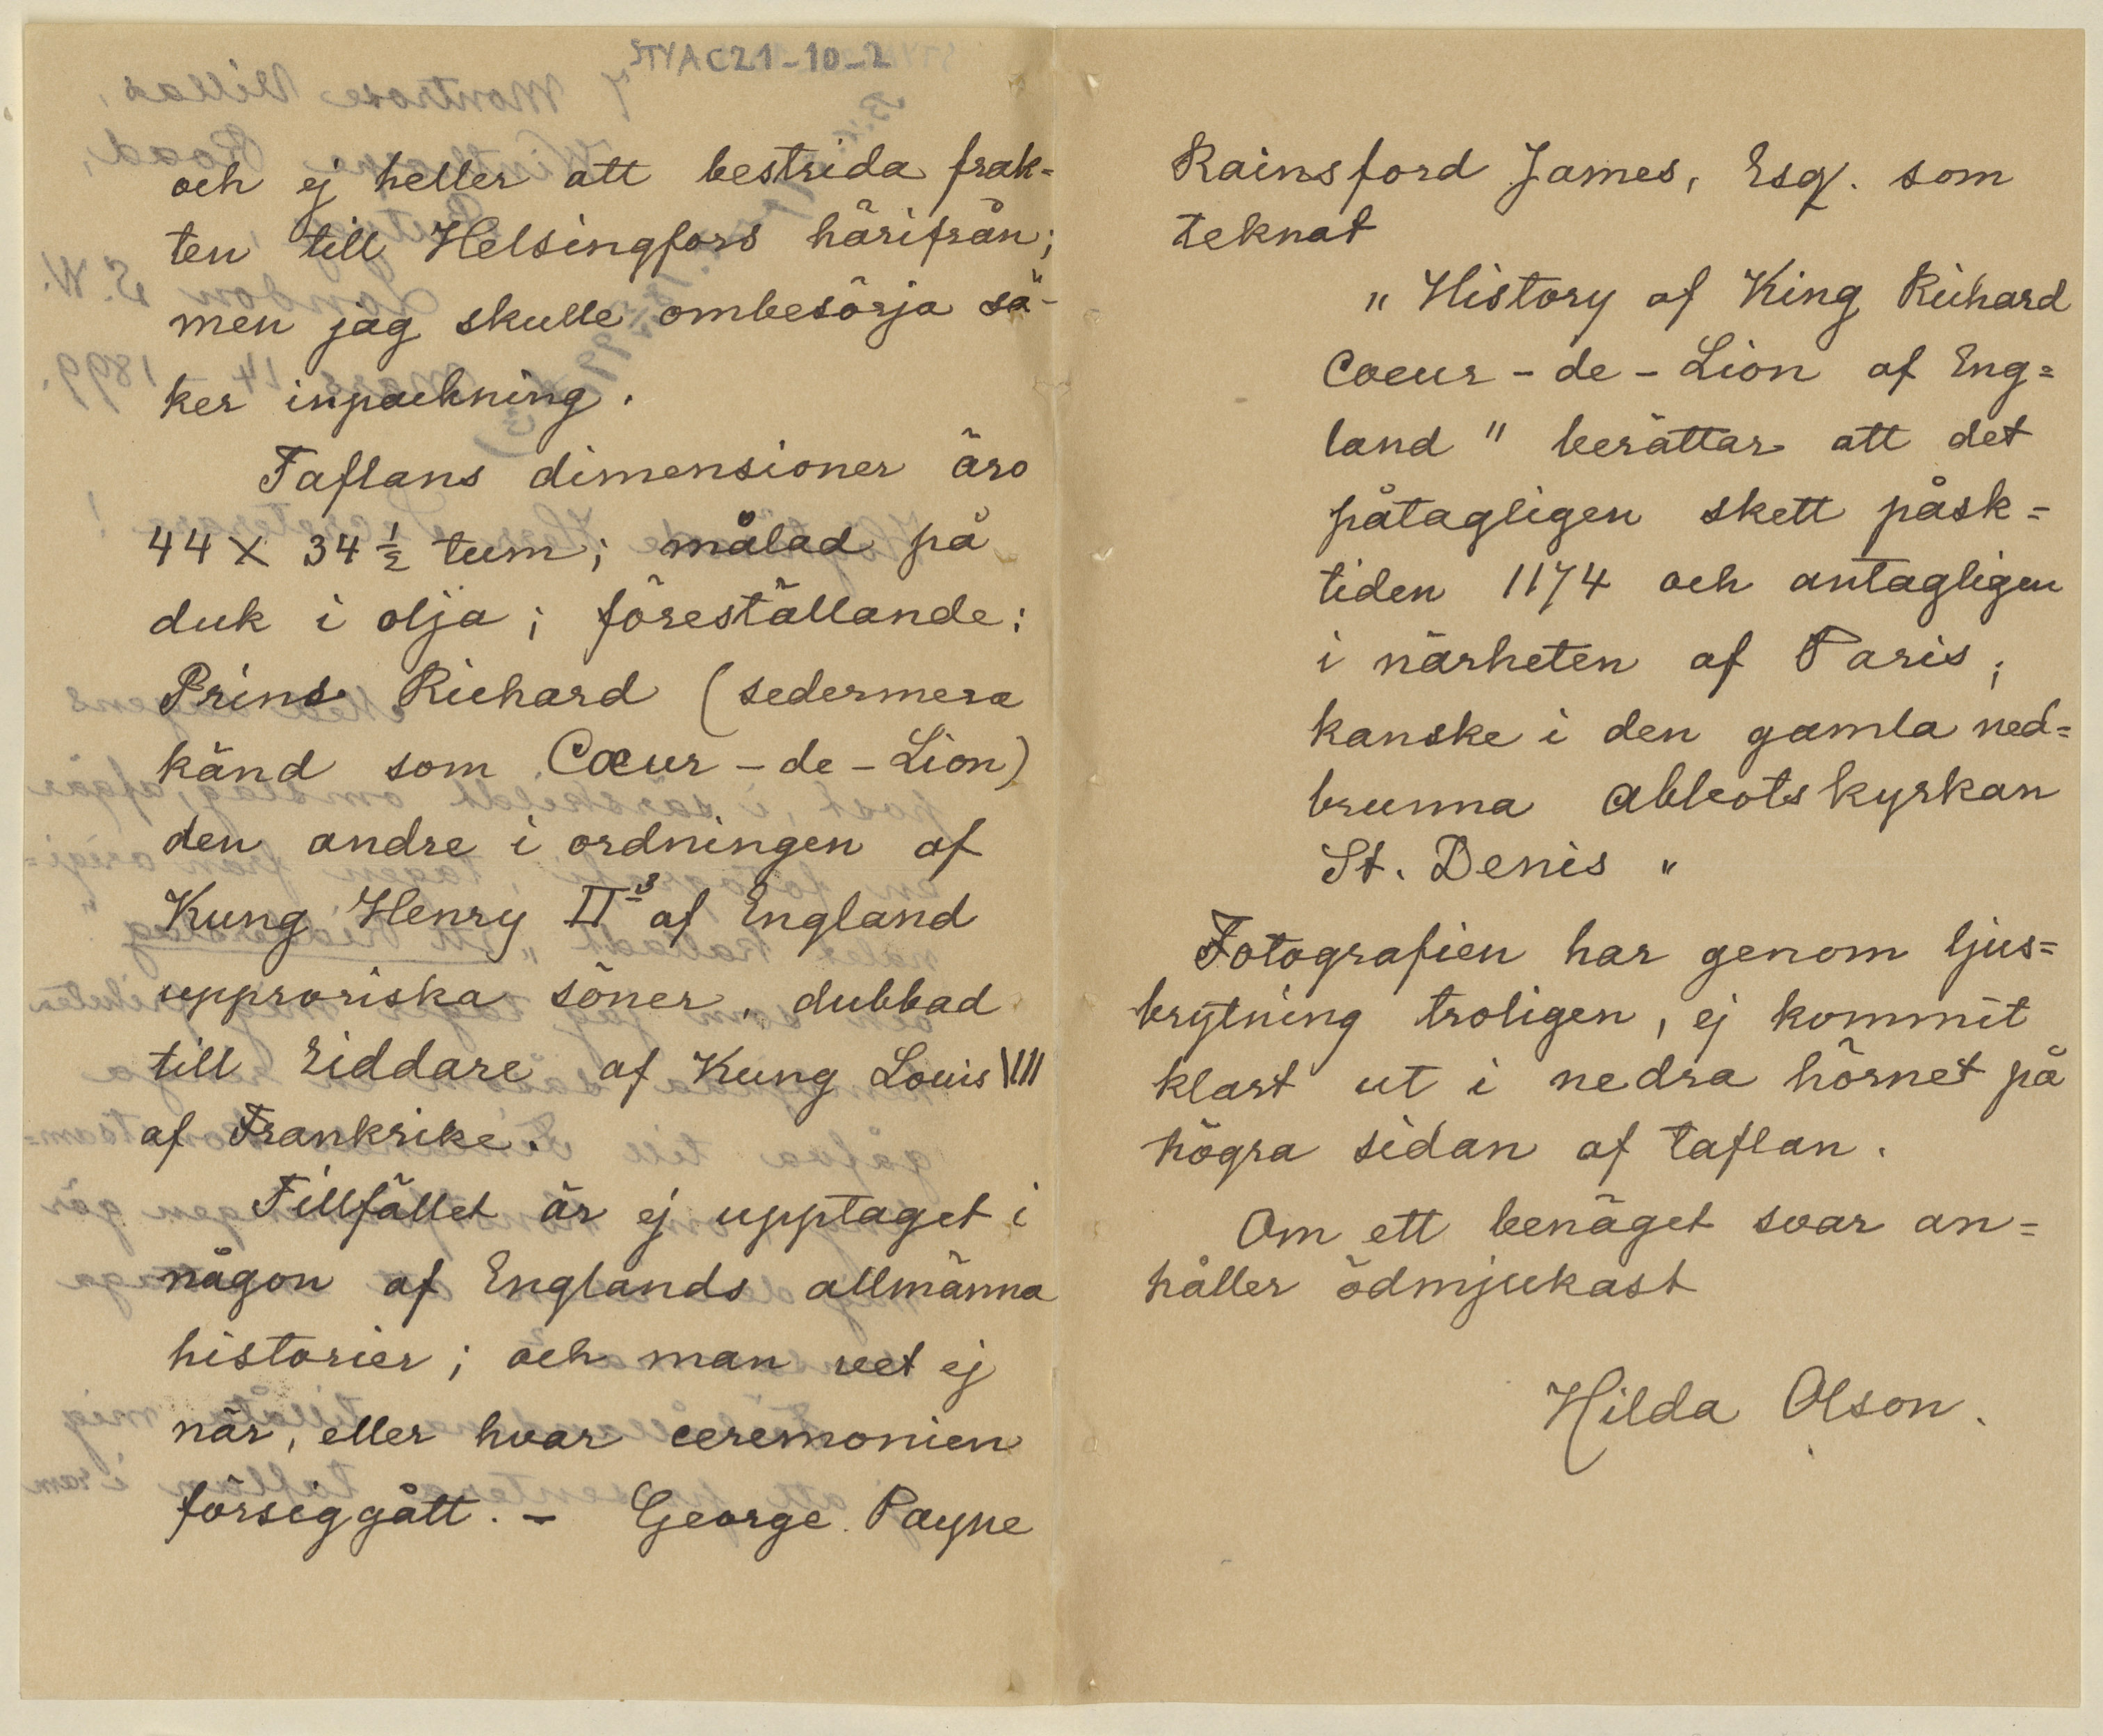 STYAC21-10-2
och ej heller att bestrida frak=
ten till Helsingfors härifrån;
men jag skulle ombesörja sä-
ker inpackning.
Taflans dimensioner äro
44 x 34 ½ tum; målad på
duk i olja; föreställande:
Prins Richard (sedermera
känd som Cœur-de-Lion)
den andre i ordningen af
Kung Henry IIs af England
upproriska söner, dubbad
till riddare af Kung Louis VIII
af Frankrike.
Tillfället är ej upptaget i
någon af Englands allmänna
historier; och man vet ej
när, eller hvar ceremonien
försiggått. - George Payne
Rainsford James, Esq. som
teknat
"History of King Richard
Coeur-de-Lion of Eng=
land" berättar att det
påtagligen skett påsk=
tiden 1174 och antagligen
i närheten af Paris;
kanske i den gamla ned=
brunna abbotskyrkan
St. Denis"
Fotografien har genom ljus=
brytning troligen, ej kommit
klart ut i nedra hörnet på
högra sidan af taflan.
Om ett benäget svar an=
håller ödmjukast
Hilda Olson.